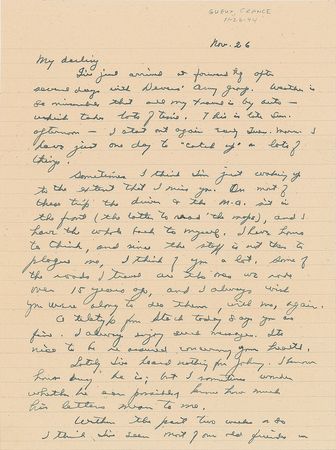 GUEUX, FRANCE
11-26-44
Nov. 26
My darling
I've just arrived at forward hq after
several days with Devers' Army group. Weather is
so miserable that all my travel is by auto -
which takes lots of time. This is late Sun.
afternoon - I start out again early Tues. morn. I
have just one day to "catch up" on lots of
things.
Sometimes I think I'm just waking up
to the extent that I miss you. On most of
these trips the driver & the M.A. sit in
the front (the latter to read the maps), and I
have the whole back to myself. I have hours
to think, and since the staff is not there to
plague me, I think of you a lot. Some of
the roads I travel are the ones we rode
over 15 years ago, and I always wish
you were along to see them, with me, again.
A teletype from Stack today says you are
fine. I always enjoy such messages. It's
nice to be re-assured concerning your health.
Lately I've heard nothing from Johnny. I know
how busy he is; but I sometimes wonder
whether he can possibly know how much
his letters mean to me.
Within the past two weeks or so
I think I've seen most of our old friends in